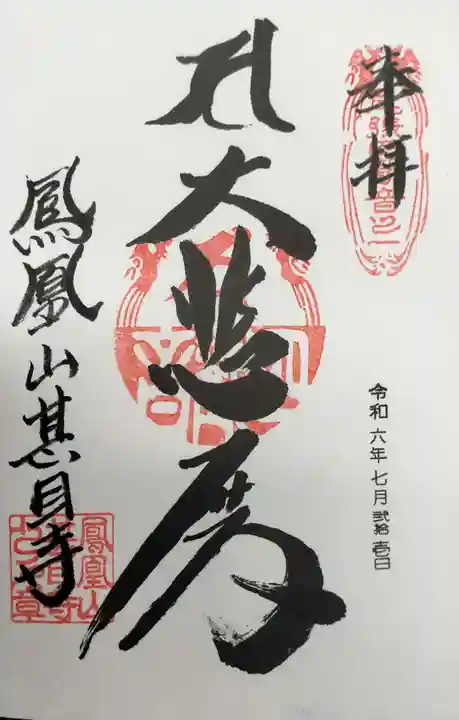 奉拝
大悲殿
令和六年七月弐拾壱日
鳳凰山甚目寺